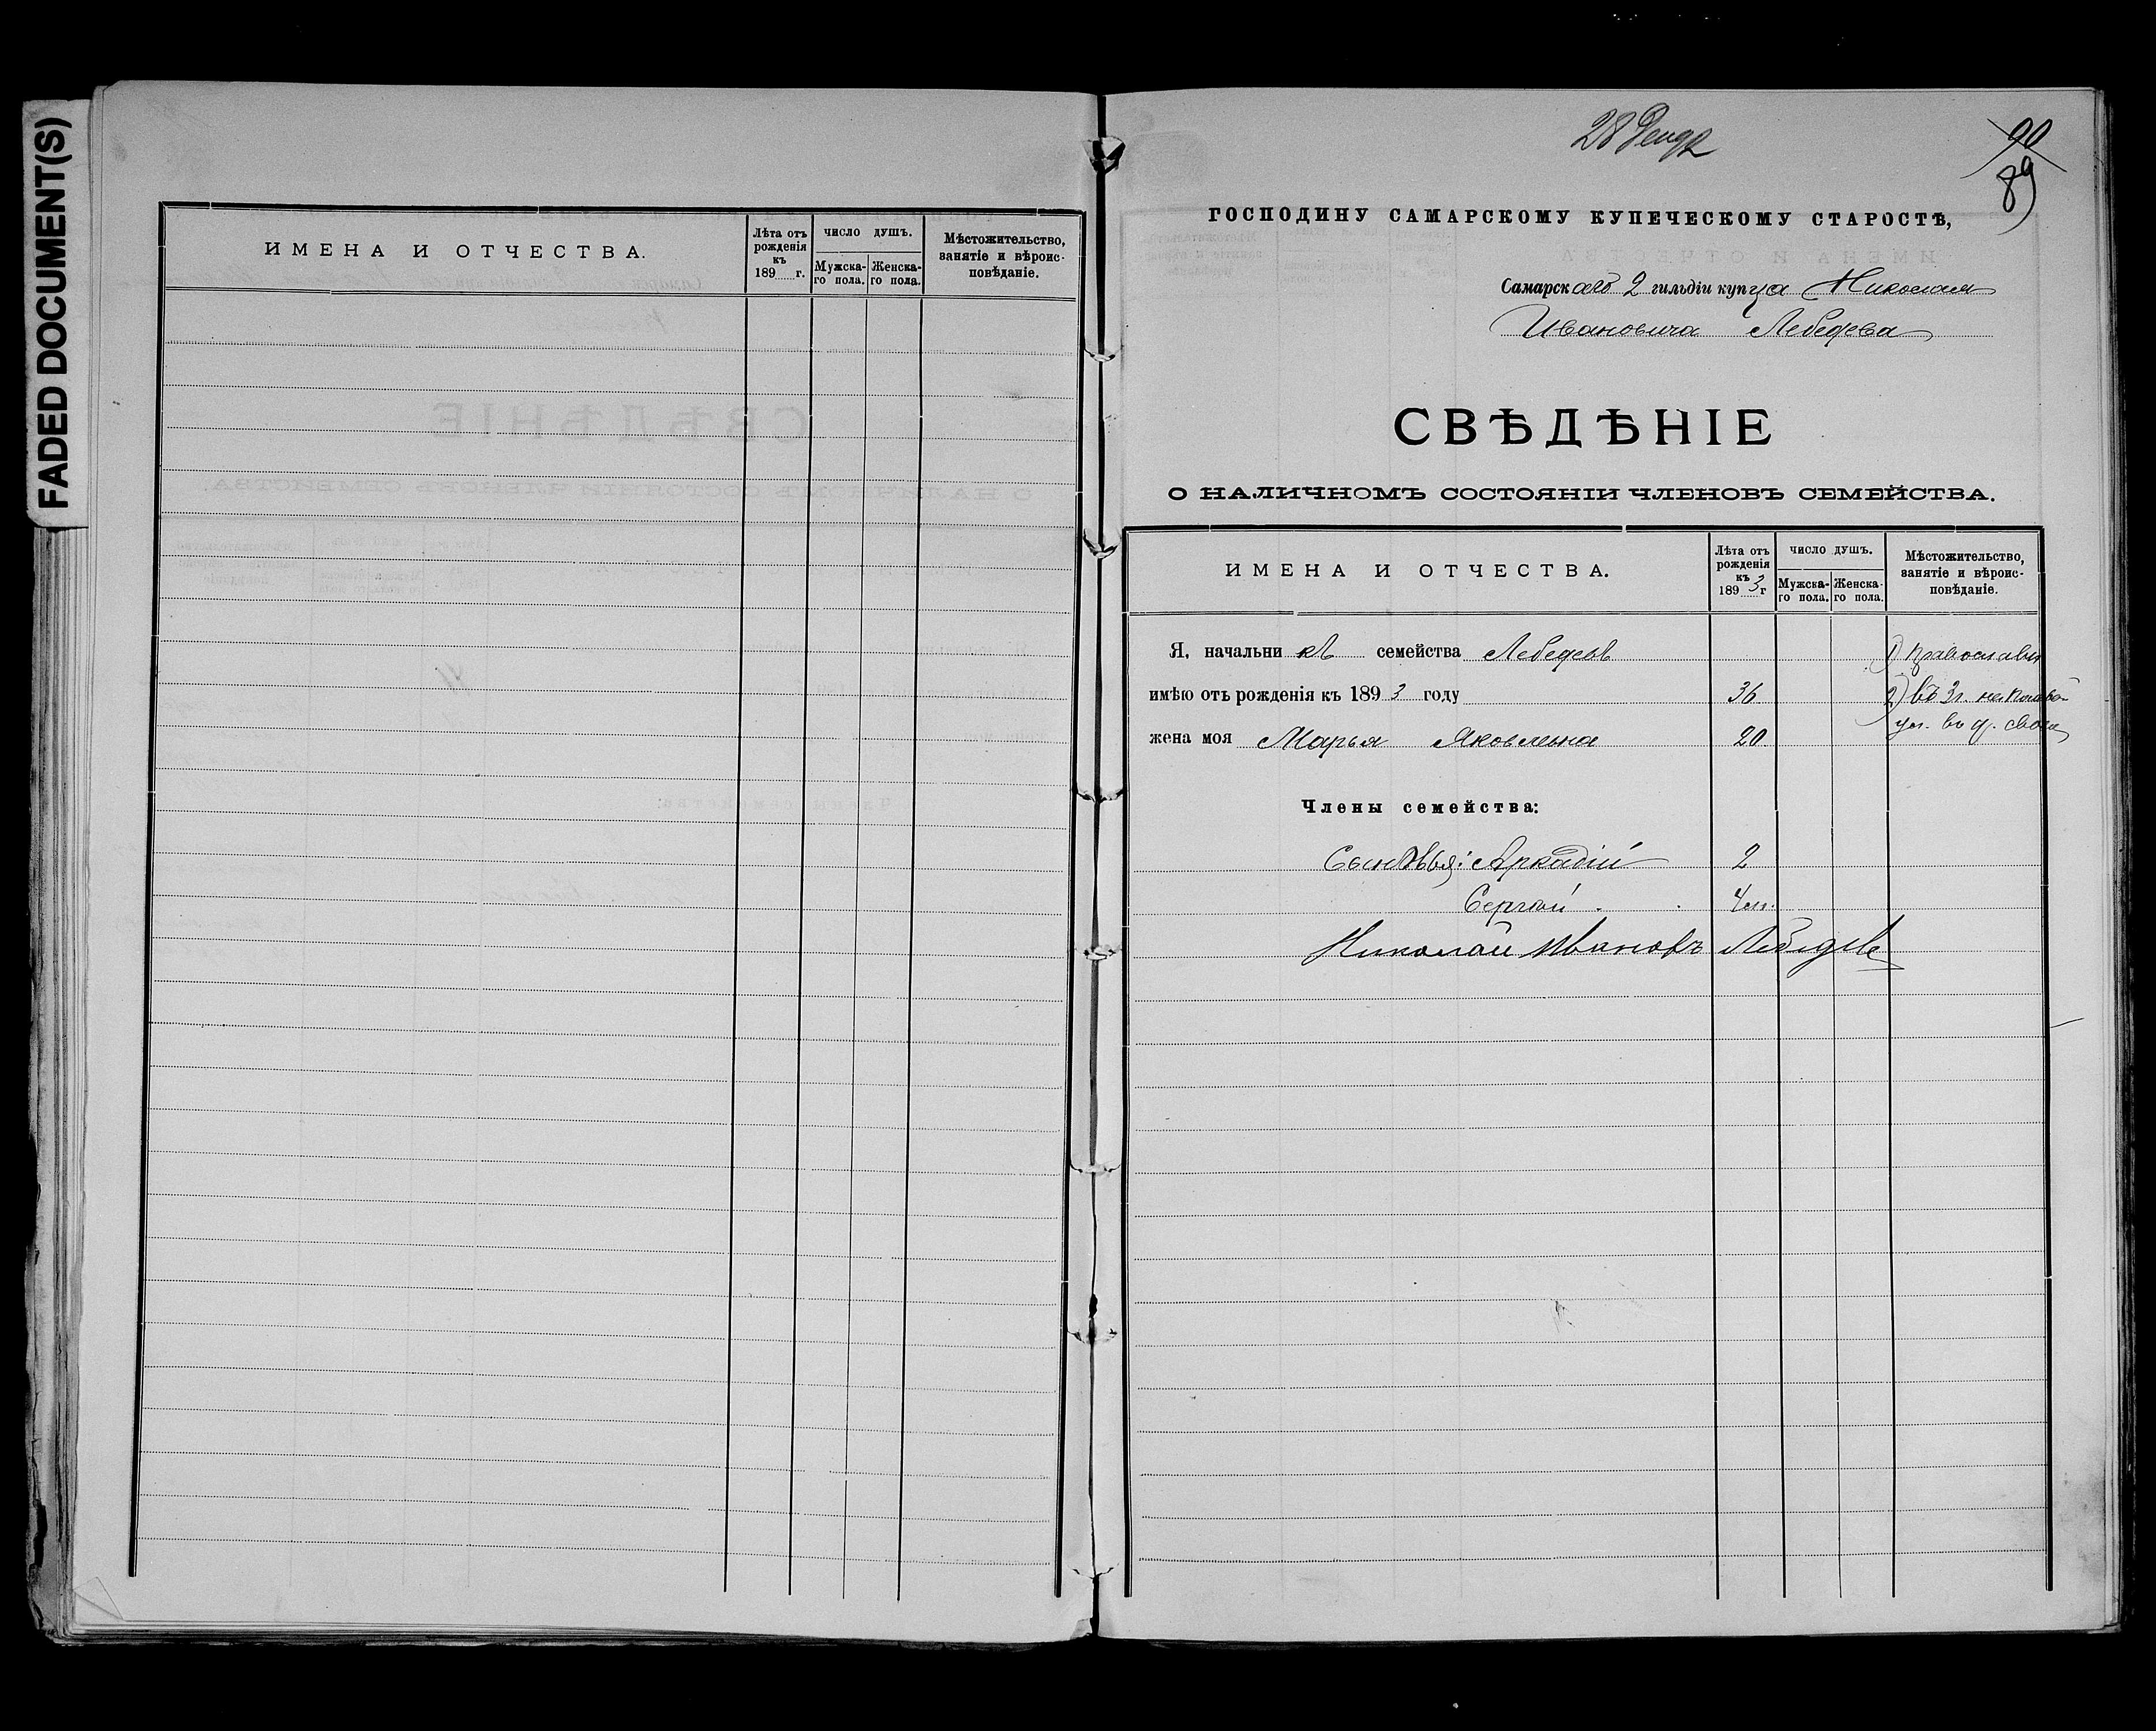 FADED DOCUMENT(S)
ИМЕНА И ОТЧЕСТВА.
Лѣта отъ рожденія къ 189 г.
число душъ.
Мужска-го пола.
Женска-го пола.
Мѣстожительство, занятіе и вѣроис-повѣданіе.
28 Декр
90
89
ГОСПОДИНУ САМАРСКОМУ КУПЕЧЕСКОМУ СТАРОСТѢ,
Самарскаго 2 гильдіи купца Николая
Ивановича Лебедева
СВѢДѢНІЕ
О НАЛИЧНОМЪ СОСТОЯНІИ ЧЛЕНОВЪ СЕМЕЙСТВА.
ИМЕНА И ОТЧЕСТВА.
Лѣта отъ рожденія къ 1893 г
число душъ.
Мужска-го пола.
Женска-го пола.
Мѣстожительство, занятіе и вѣроис-повѣданіе.
Я, начальникъ семейства Лебедевъ 1) Православн
имѣю отъ рожденія къ 1893 году 36 2) въ 3 г. на
ул. въ д. свое
жена моя Марья Яковлевна 20
Члены семейства:
Сыновья: Аркадій 2
Сергѣй 4 м.
Николай Ивановъ Лебедевъ